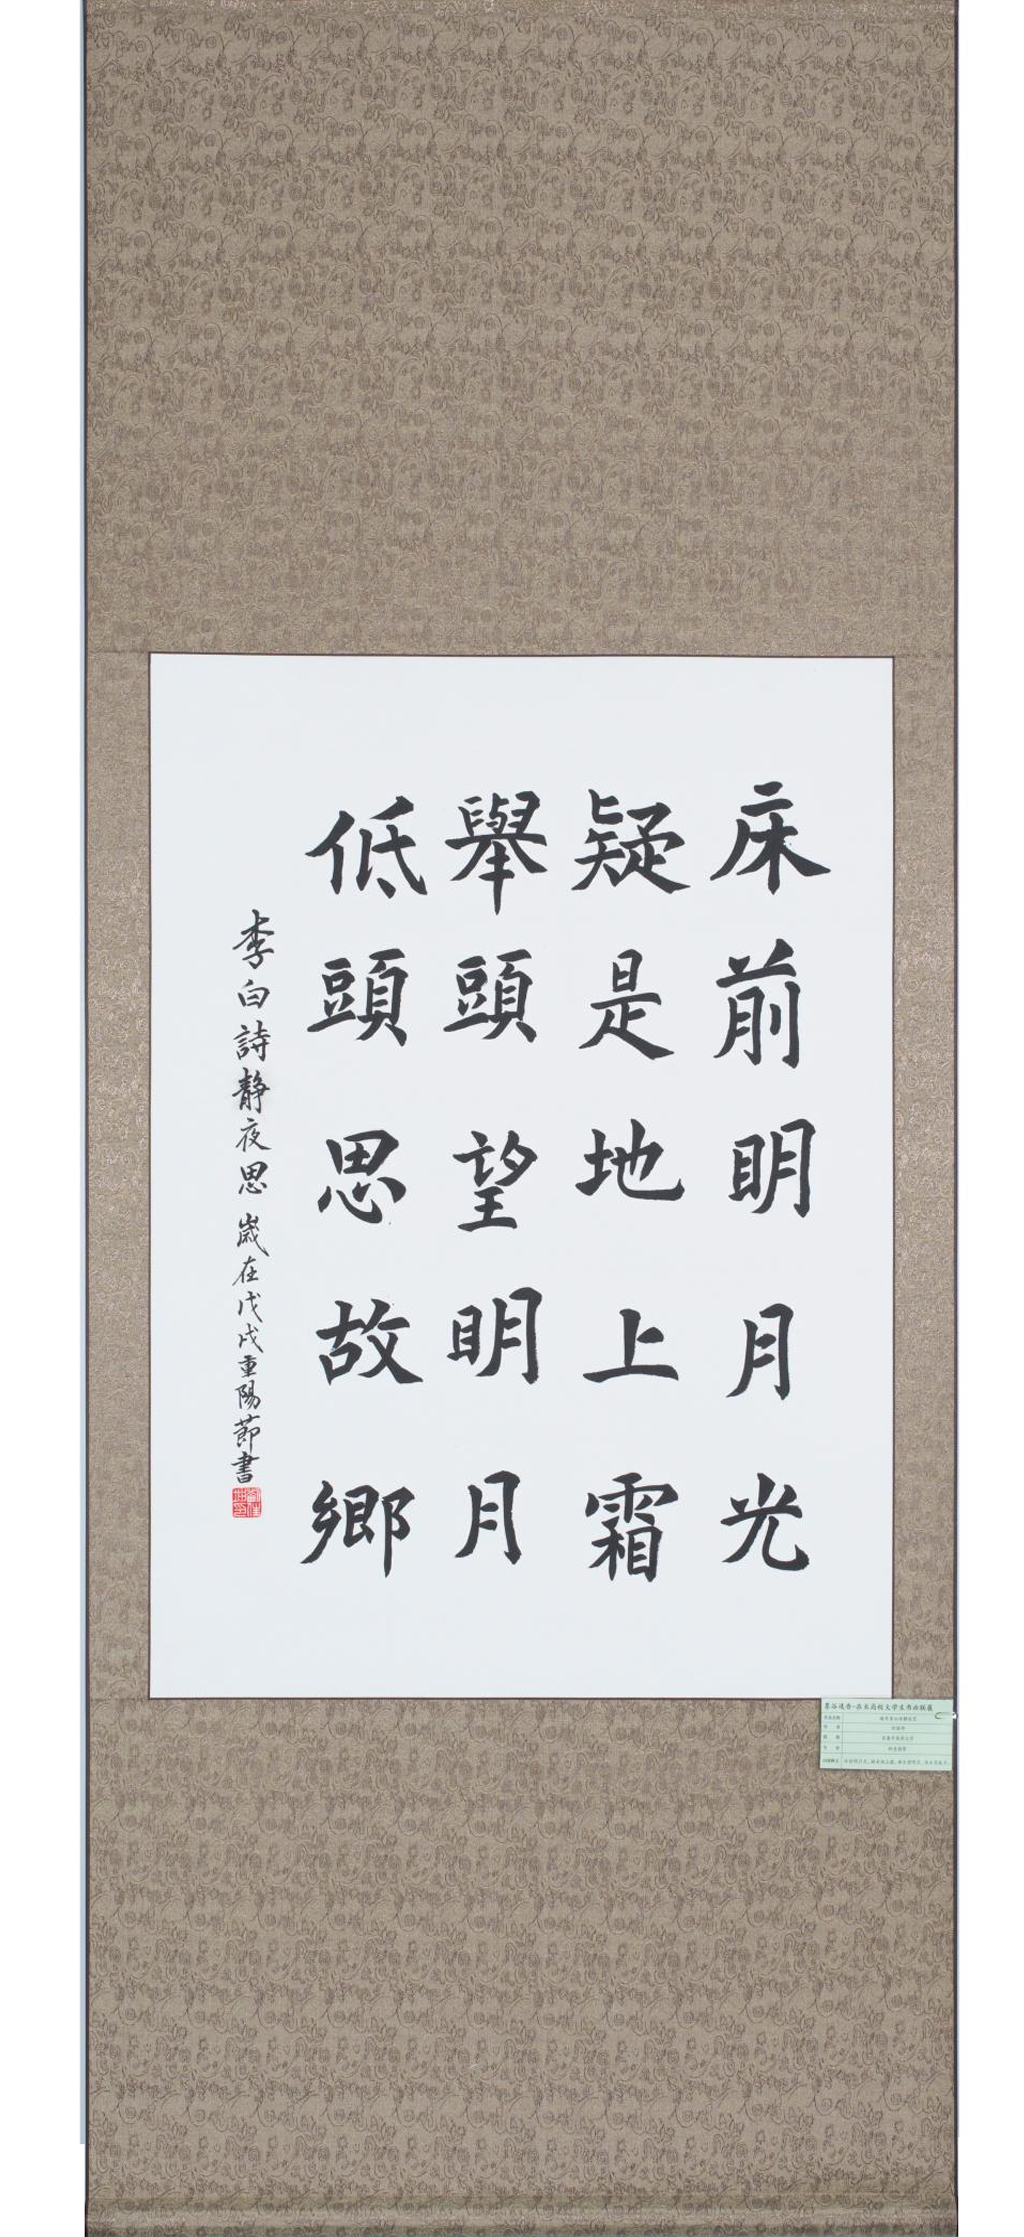 床前明月光
疑是地上霜
舉頭望明月
低頭思故鄉
李白詩靜夜思 歲在戊戌重陽節書